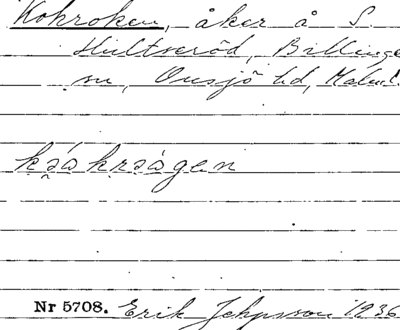 Kohroken, åker å S.
Hultseröd, Billinge
sn, Onsjö hd, Malm. l.
Nr 5708. Erik Jeppsson 1936